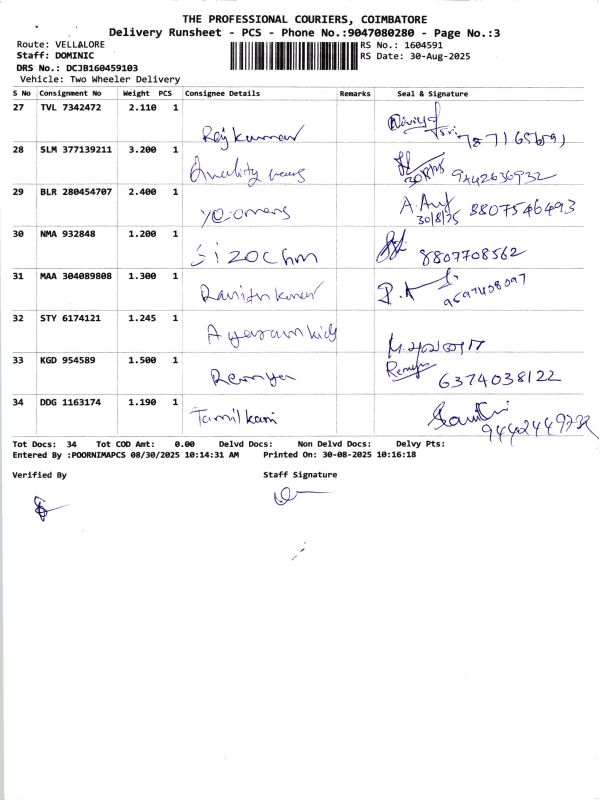 THE PROFESSIONAL COURIERS, COIMBATORE
Delivery Runsheet - PCS - Phone No.:9047080280 - Page No.:3
Route: VELLALORE RS No.: 1604591
Staff: DOMINIC RS Date: 30-Aug-2025
DRS No.: DCJB160459103
Vehicle: Two Wheeler Delivery
S No Consignment No Weight PCS Consignee Details Remarks Seal & Signature
27 TVL 7342472 2.110 1
Rajkumar
28 SLM 377139211 3.200 1
Quality 9442636932
29 BLR 280454707 2.400 1
30/8/25 8807546493
30 NMA 932848 1.200 1
8807708562
31 MAA 304089808 1.300 1
32 STY 6174121 1.245 1
33 KGD 954589 1.500 1
Remya 6374038122
34 DDG 1163174 1.190 1
Tamilkani
Tot Docs: 34 Tot COD Amt: 0.00 Delvd Docs: Non Delvd Docs: Delvy Pts:
Entered By :POORNIMAPCS 08/30/2025 10:14:31 AM Printed On: 30-08-2025 10:16:18
Verified By Staff Signature